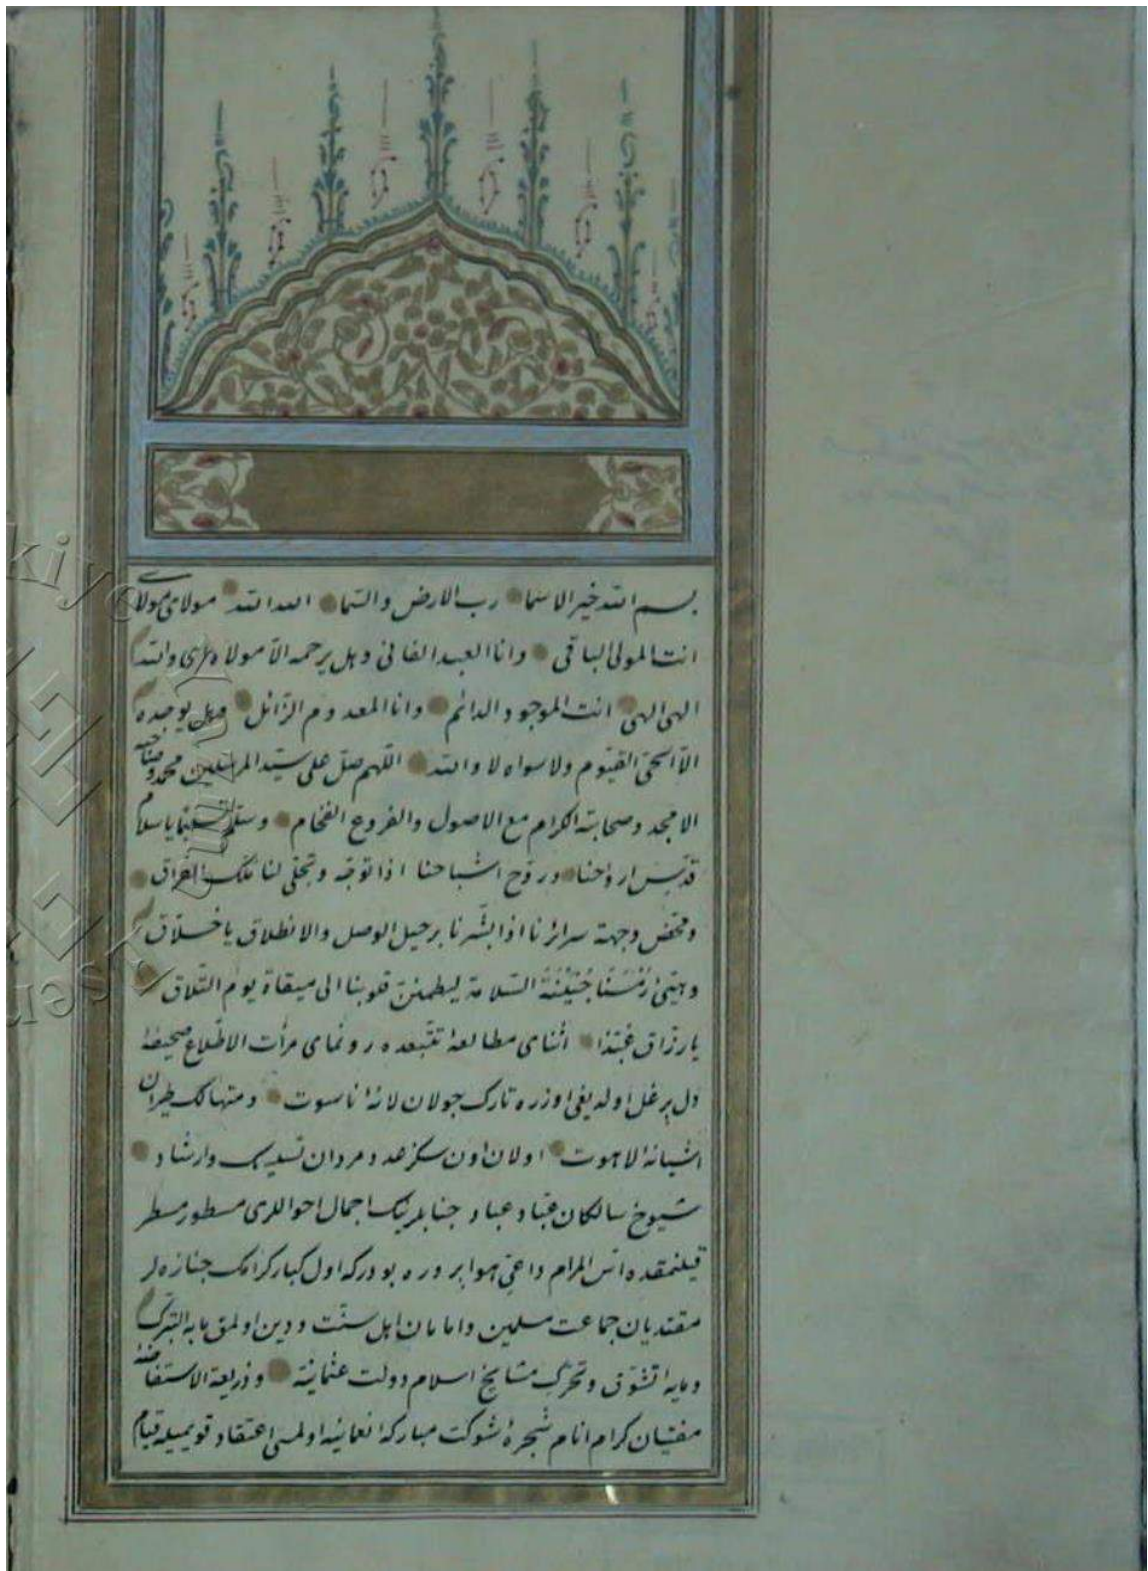 بسم الله خير الاسما رب الارض والسما الله الله مولاى مولاى
انت المولى الباقى وانا العبد الفانى وهل يرحمه الا مولاه والله
الهى الهى انت الموجود الدائم وانا المعدوم الزائل وهل يوجده
الا الحى القيوم ولا سواه لا والله اللهم صل على سيد المرسلين محمد
الامجد وصحابته الكرام مع الاصول والفروع الفخام وسلم يا سلام
قدس ارواحنا وروح اشباحنا اذا توجه وتجلى لنا ملك الفراق
ومحض وجهة سرائرنا اذا بشرنا برحيل الوصل والانطلاق يا خلاق
وهيئ السلامة ليطمئن قلوبنا الى ميقاة يوم التلاق
يا رزاق اثناى مطالعۀ رونماى مرأت الاطلاع صحيفۀ
دل اولديغى اوزره تارك جولان لانۀ ناسوت ومتهالك طيران
اشيانۀ لاهوت اولان اون سكز عدد مردان وارشاد
شيوخ سالكان عباد جنابلرينك اجمال احواللرى مسطور مسطر
قيلنمقده داعئ بودركه اول كبار كرامك جنازه لر
مقتديان جماعت مسلمين وامامان اهل سنت ودين اولمق مابه التبرك
ومابه التشوق وتحرك مشايخ اسلام دولت عثمانيه وذريعة الاستفاضۀ
مفتيان كرام انام شجرۀ شوكت مباركۀ نعمانيه اولمسى اعتقاد قويميله قيام